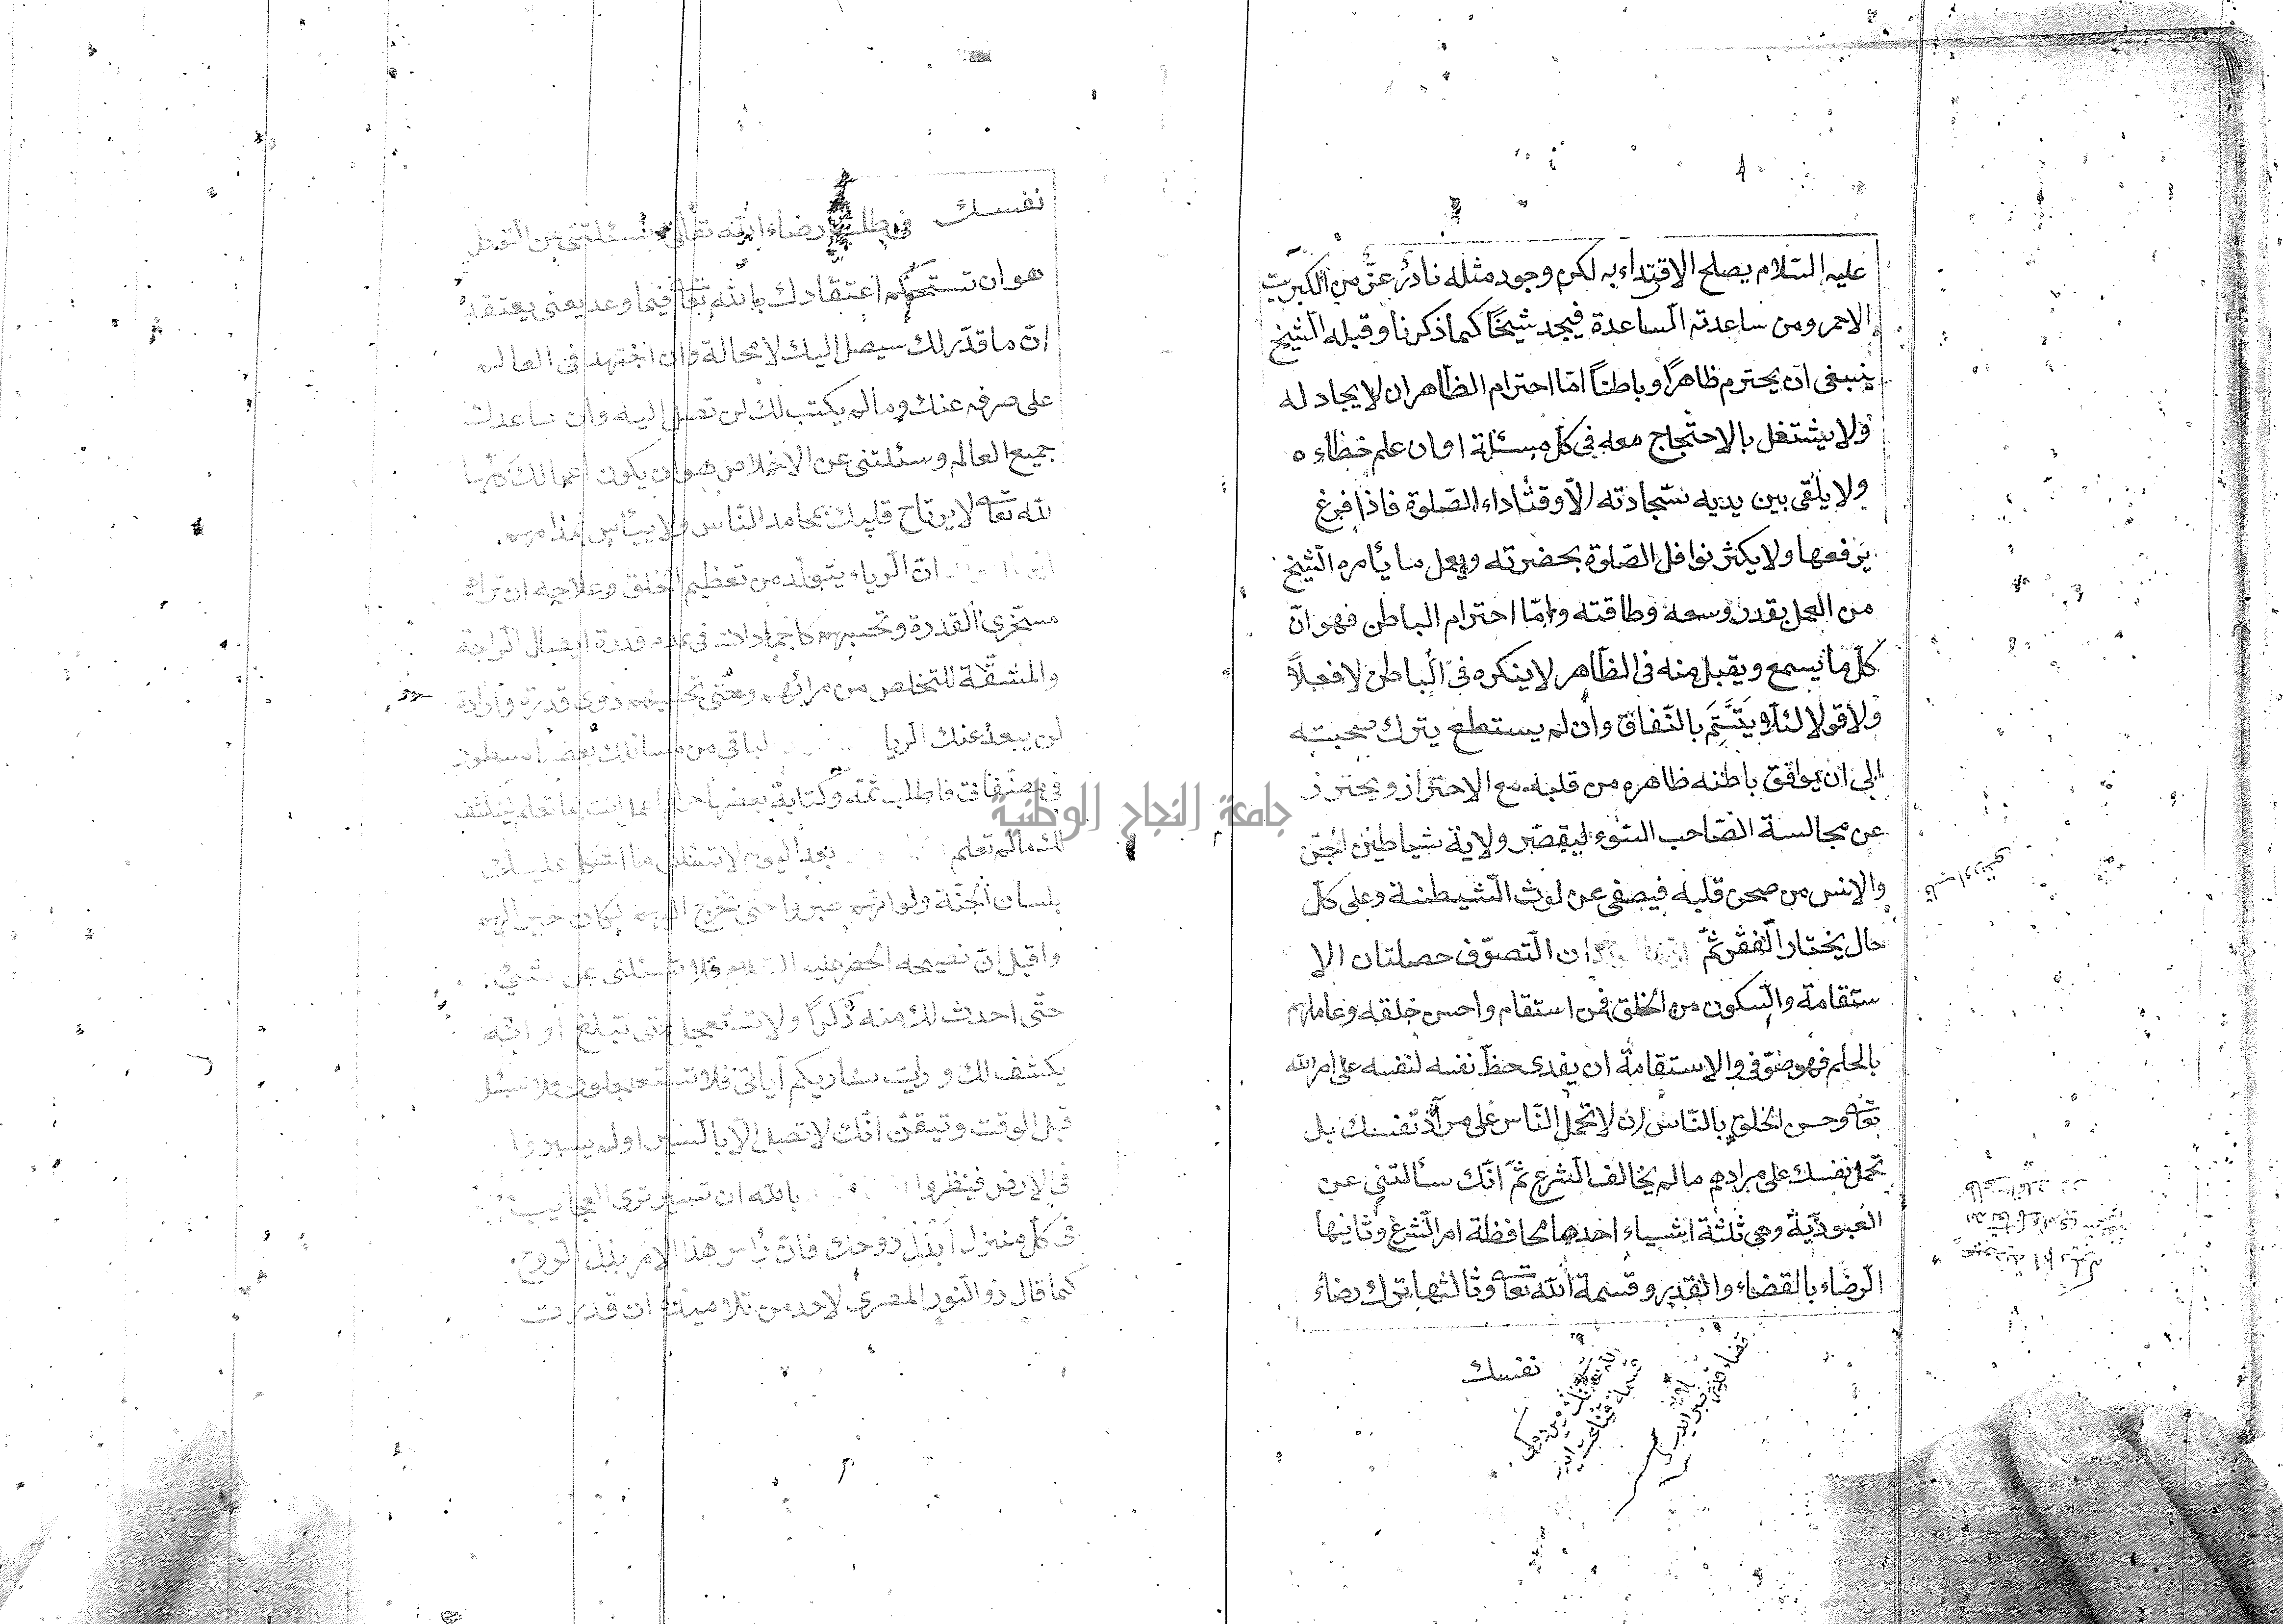 عليه السّلام يصلح الاقتداء به لكن وجود مثله نادرٌ عزّ من الكبريت
الاحمر ومن ساعدته السّاعدة فيجد شيخًا كما ذكرنا وقبله الشّيخ
ينبغى ان يحترم ظاهرًا وباطنًا امّا احترام الظّاهر ان لا يجادله
ولا يشتغل بالاحتجاج معه فى كلّ مسئلة اوان علم خطاءه
ولا يلقى بين يديه سّجادته الّا وقت اداء الصّلوة فاذا فرغ
يرفعها ولا يكثر نوافل الصّلوة بحضرته ويعمل ما يأمره الشّيخ
من العمل بقدر وسعه وطاقته وامّا احترام الباطن فهو انّ
كلّ ما يسمع ويقبل منه فى الظّاهر لا ينكره فى الباطن لا فعلًا
ولا قولا لئلّا يتّسم بالنّفاق وان لم يستطع يترك صحبته
الى ان يوافق باطنه ظاهره من قلبه مع الاحتراز ويحترز
عن مجالسة الصّاحب السّوء ليقصّر ولاية شياطين الجنّ
والانس من صحن قلبه فيصفى عن لوث الشّيطنة وعلى كلّ
حال يختار الفقر ثمّ ان التصوّف حصلتان الا
ستقامة والسّكون من الخلق فمن استقام واحسن خلقه وعاملهم
بالحلم فهو صوّفى والاستقامة ان يفدى حظّ نفسه لنفسه على امر الله
تعا وحسن الخلق بالنّاس ان لا تحمل النّاس على مراد نفسك بل
تحمل نفسك على مرادهم ما لم يخالف الشّرع ثمّ انّك سألتنى عن
العبوديّة وهى ثلثة اشياء احدها محافظة امر الشّرع وثانيها
الرّضاء بالقضاء والقدر وقسمة الله تعا وثالثها ترك رضاء
نفسك
نفسك فى طلب رضاء الله تعالى وسئلتنى عن التوكل
هو ان تستحكم اعتقادك بالله تعا فيما وعد يعنى يعتقد
انّ ما قدّر لك سيصل اليك لا محالة وان اجتهد فى العالم
على صرفه عنك وما لم يكتب لك لن تصل اليه وان ساعدك
جميع العالم وسئلتنى عن الاخلاص هو ان يكون اعمالك كلّها
لله تعا لا يرتاح قلبك بمحامد النّاس ولا ييأس بمذامهم
انّ الرّياء يتولّد من تعظيم الخلق وعلاجه ان تراهم
مسخّرى القدرة وتحسبهم كالجمادات فى عدم قدرة ايصال الرّاحة
والمشقّة للتخلص من مرائهم ومتى تحسبهم ذوى قدرة وارادة
لن يبعد عنك الريا الباقى من مسائلك بعضها مسطور
فى مصنّفاتى فاطلبه ثمّه وكتابة بعضها حرام اعمل انت بما تعلم لينكشف
لك ما لم تعلم بعد اليوم لا تسئلنى ما اشكل عليك
بلسان الجنّة ولو انّهم صبروا حتّى تخرج اليهم لكان خيرا لهم
واقبل انّ نصيحه الخضر عليه السّلام فلا تسئلنى عن شىء
حتّى احدث لك منه ذكرًا ولا تستعجل حتى تبلغ او انّه
يكشف لك ساريكم آياتى فلا تستعجلون فلا تسئل
قبل الوقت وتيقن انّك لا تصل الّا بالسّير اولم يسيروا
فى الارض فينظروا بالله ان تسير ترى العجايب
فى كلّ منزل ابذل روحك فانّ رأس هذا الامر بذل الرّوح
كما قال ذو النّون المصرى لاحد من تلاميذه ان قدرت
جامعة النجاح الوطنية